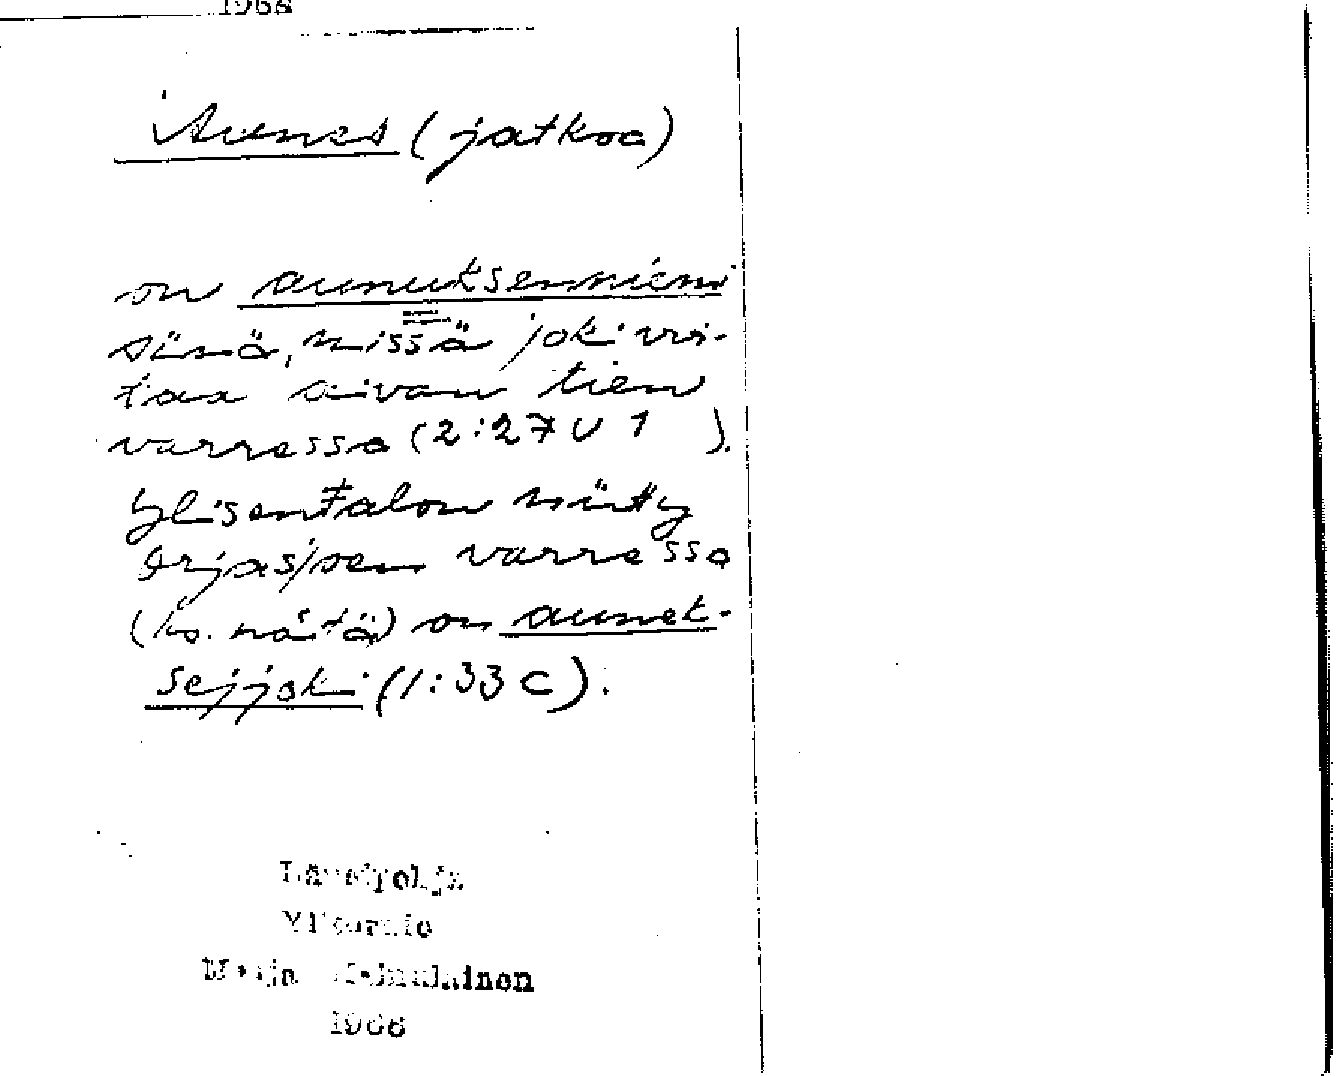 1968
Aunes (jatkoa)
on aunuksenniemi
siinä, missä joki vir-
taa aivan tien
varressa (2:27 U 1 ).
Ylisentalon niitty
Orjasjoen varressa
(ks. näitä) on aunek-
sejjoki (1:33 C).
Länsipohja
Ylitornio
Marja
1966